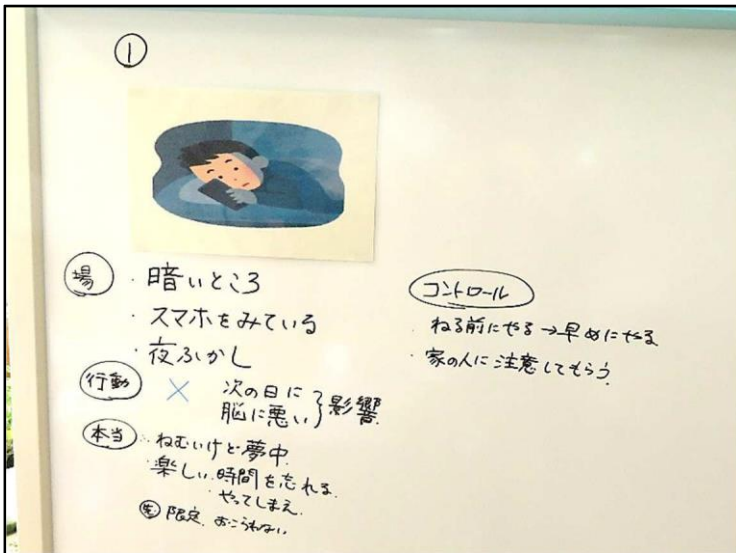 ①
場
・暗いところ
・スマホをみている
・夜ふかし
行動
×
次の日に
脳に悪い}影響
本当
・ねむいけど夢中
・楽しい、時間を忘れる
・やってしまえ
限定、おこられない
コントロール
・ねる前にやる→早めにやる
・家の人に注意してもらう